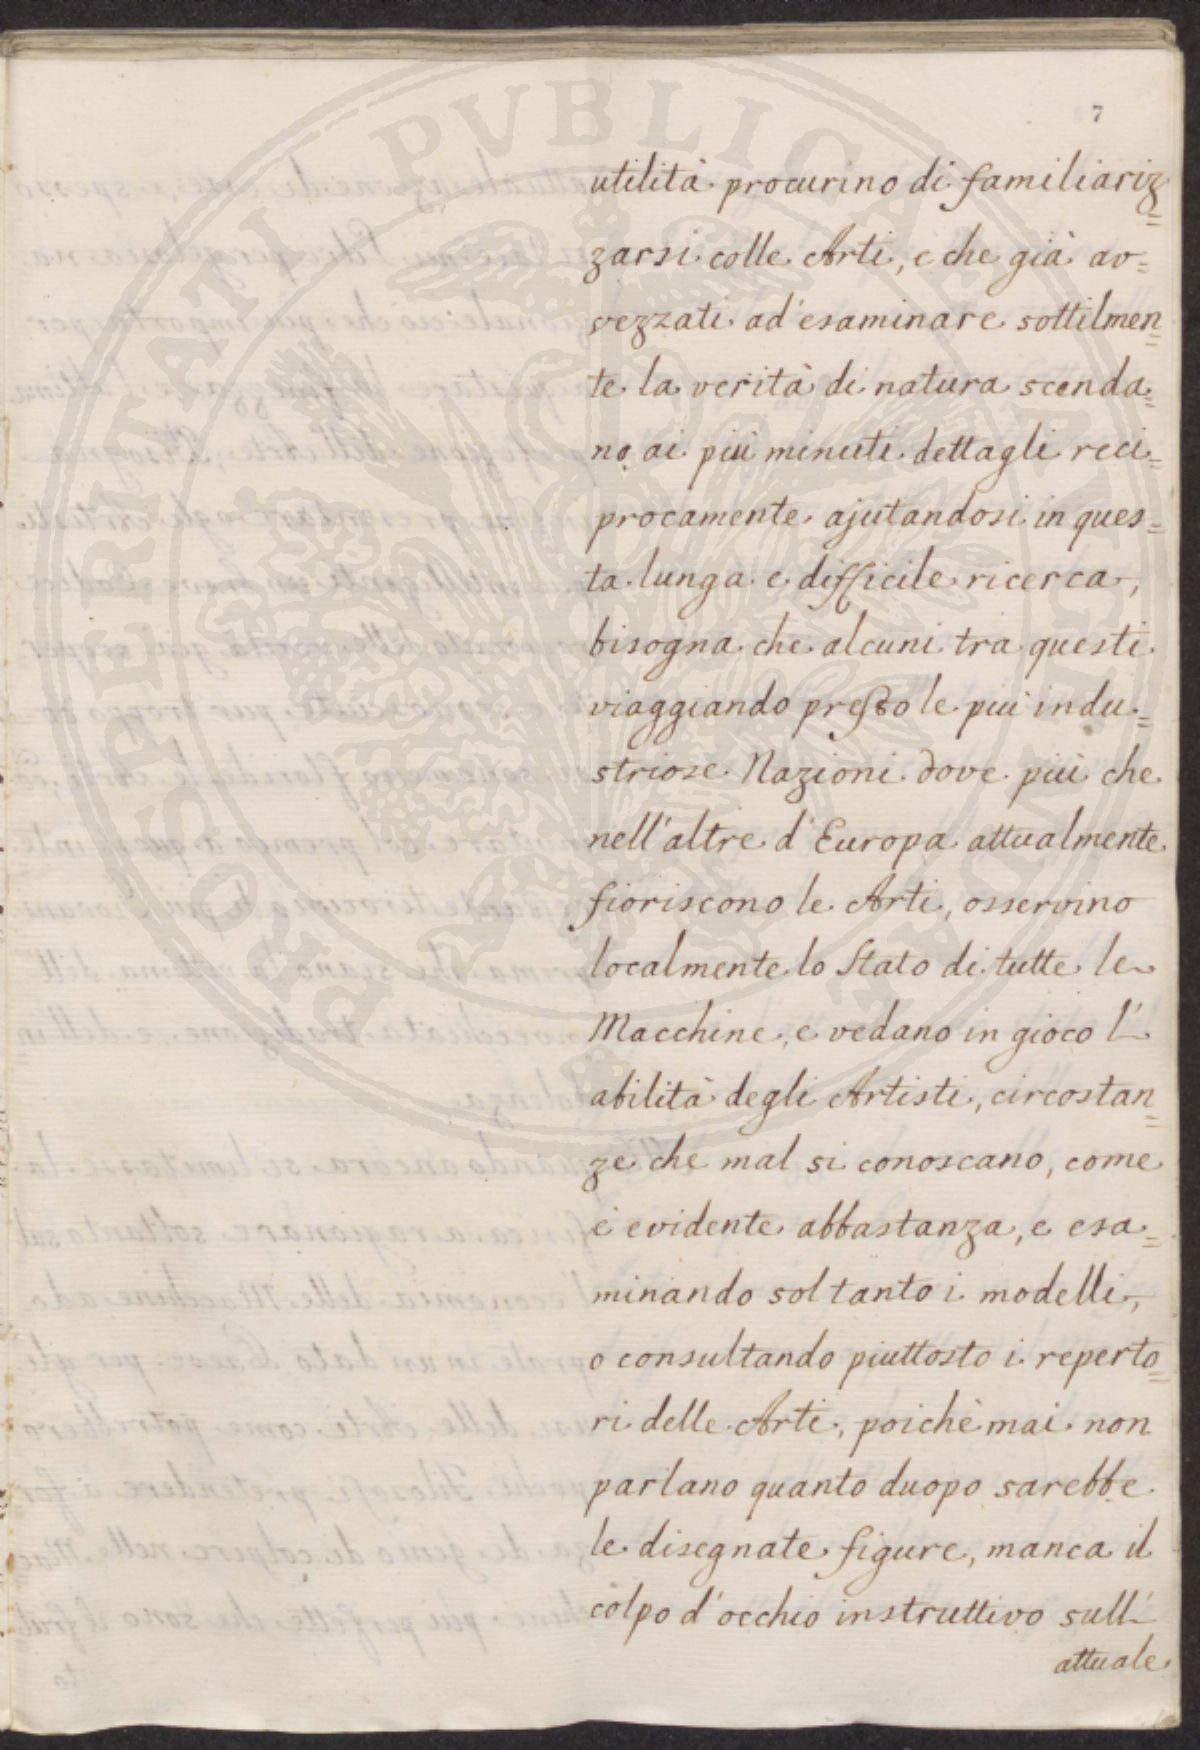 7
utilità procurino di familiariz=
zarsi colle Arti, e che già av=
vezzati ad esaminare sottilmen=
te la verità di natura scenda=
no ai più minuti dettagli reci=
procamente ajutandosi in ques=
ta lunga e difficile ricerca,
bisogna che alcuni tra questi
viaggiando presso le più indu=
striose Nazioni dove più che
nell'altre d'Europa attualmente
fioriscono le Arti, osservino
localmente lo Stato di tutte le
Macchine, e vedano in gioco l'
abilità degli Artisti, circostan=
ze che mal si conoscano, come
è evidente abbastanza, e esa=
minando soltanto i modelli,
o consultando piuttosto i reperto=
ri delle Arti, poichè mai non
parlano quanto duopo sarebbe
le disegnate figure, manca il
colpo d'occhio instruttivo sull'
attuale
PROSPERITATI PVBLICAE AVGENDAE